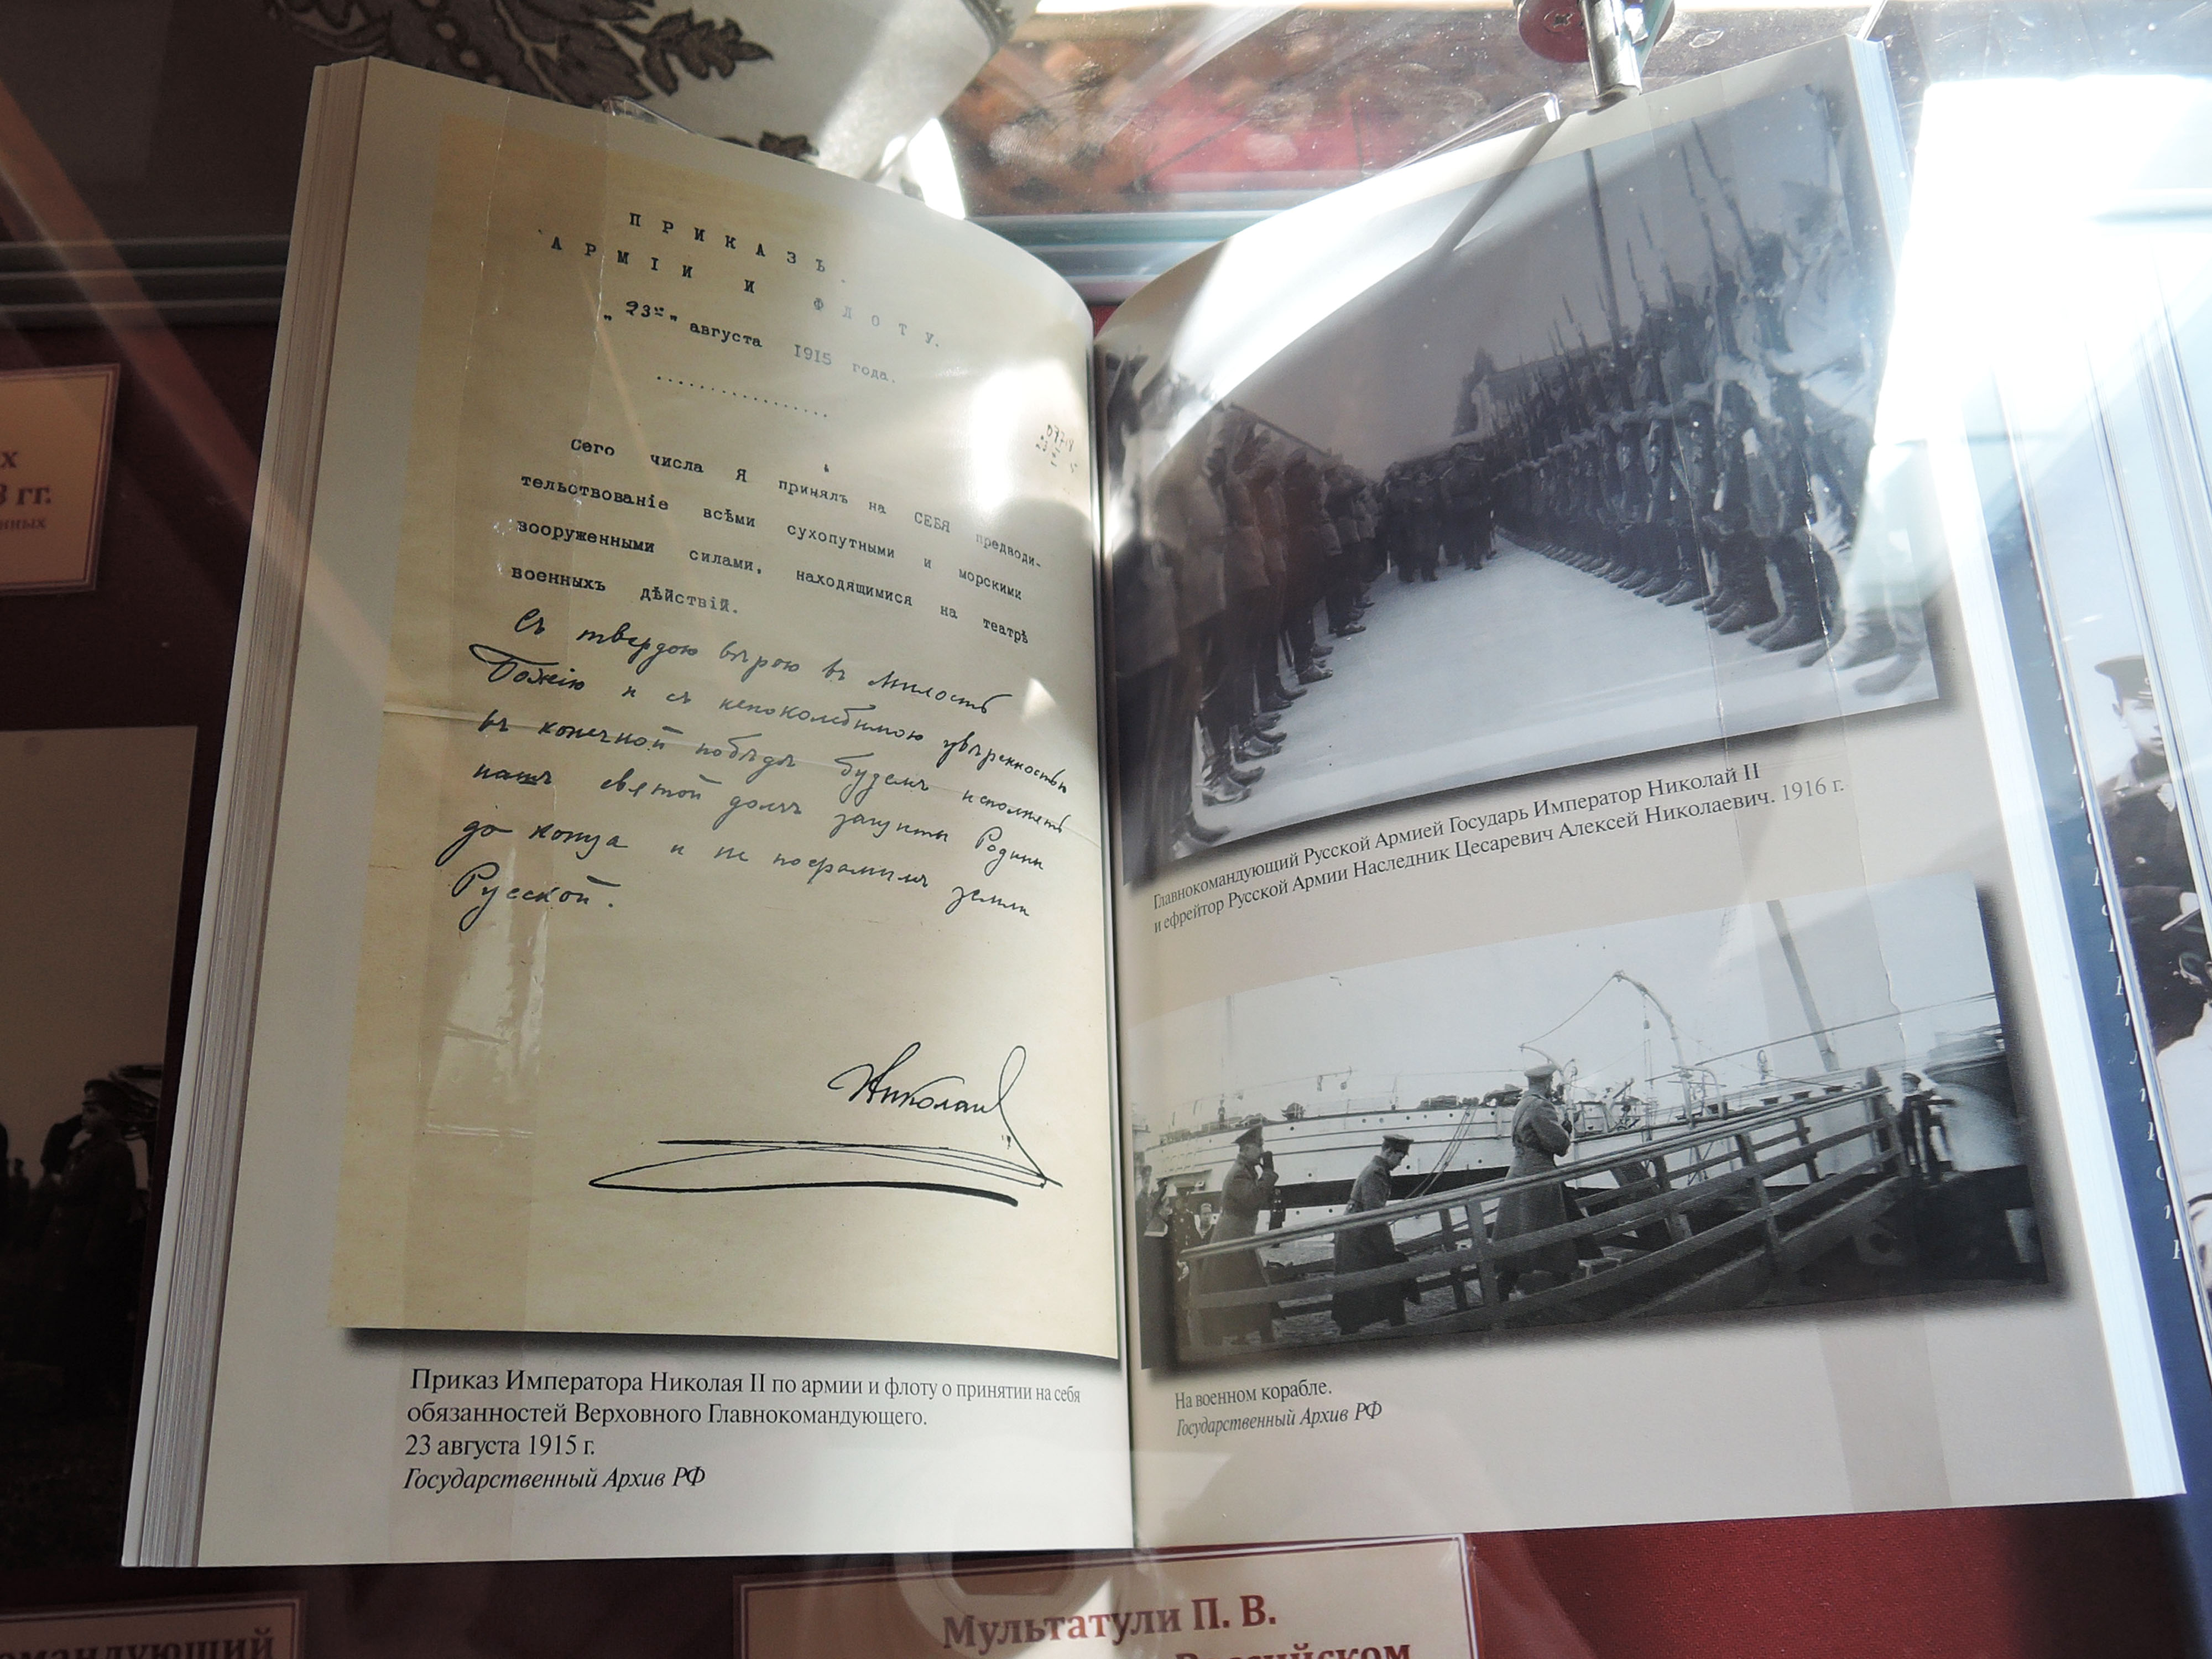 ПРИКАЗЪ
АРМІИ И ФЛОТУ.
„23го" августа 1915 года.
Сего числа Я принялъ на СЕБЯ предводи-
тельствованіе всѣми сухопутными и морскими
вооруженными силами, находящимися на театрѣ
военныхъ дѣйствій.
Съ твердою вѣрою въ милость
Божію и съ непоколебимою увѣренностью
въ конечной побѣдѣ будемъ исполнять
нашъ святой долгъ защиты Родины
до конца и не посрамимъ земли
Русской.
Николай
Приказ Императора Николая II по армии и флоту о принятии на себя
обязанностей Верховного Главнокомандующего.
23 августа 1915 г.
Государственный Архив РФ
Главнокомандующий Русской Армией Государь Император Николай II
и ефрейтор Русской Армии Наследник Цесаревич Алексей Николаевич. 1916 г.
На военном корабле.
Государственный Архив РФ
Мультатули П. В.
гг.